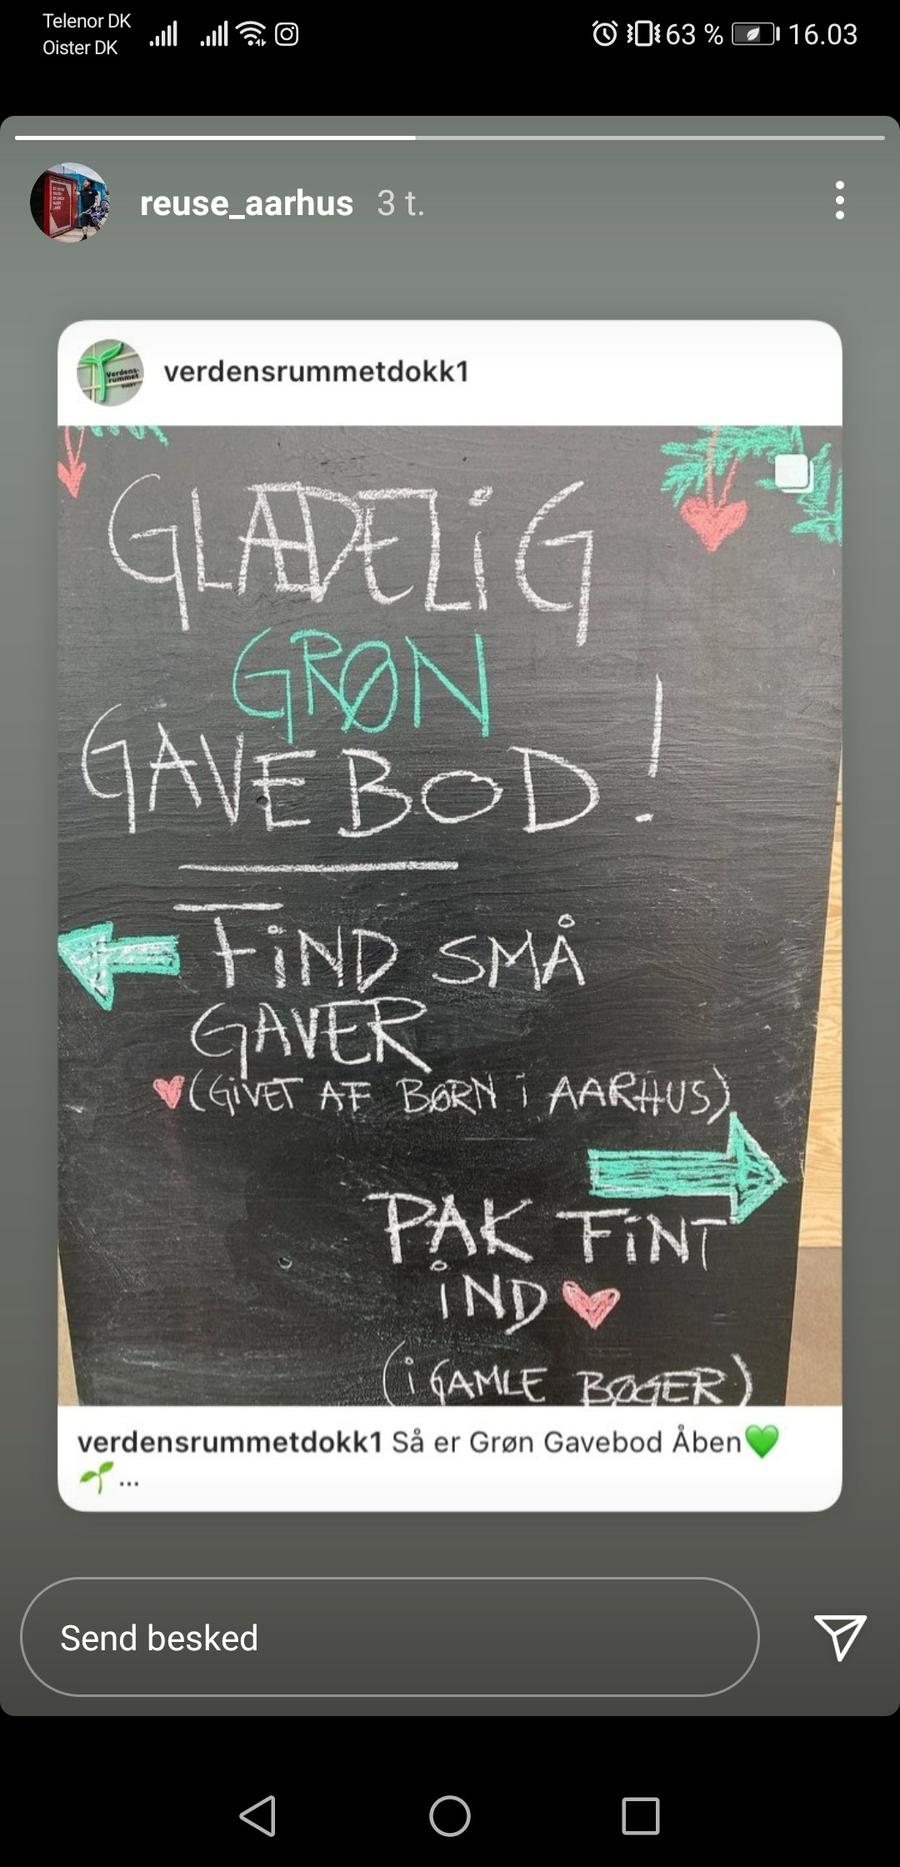 Telenor DK
Oister DK
63 %
16.03
reuse_aarhus 3 t.
verdensrummetdokk1
GLÆDELIG
GRØN
GAVEBOD!
FIND SMÅ
GAVER
(GIVET AF BØRN I AARHUS)
PAK FINT
IND
(I GAMLE BØGER)
verdensrummetdokk1 Så er Grøn Gavebod Åben💚
🌱...
Send besked